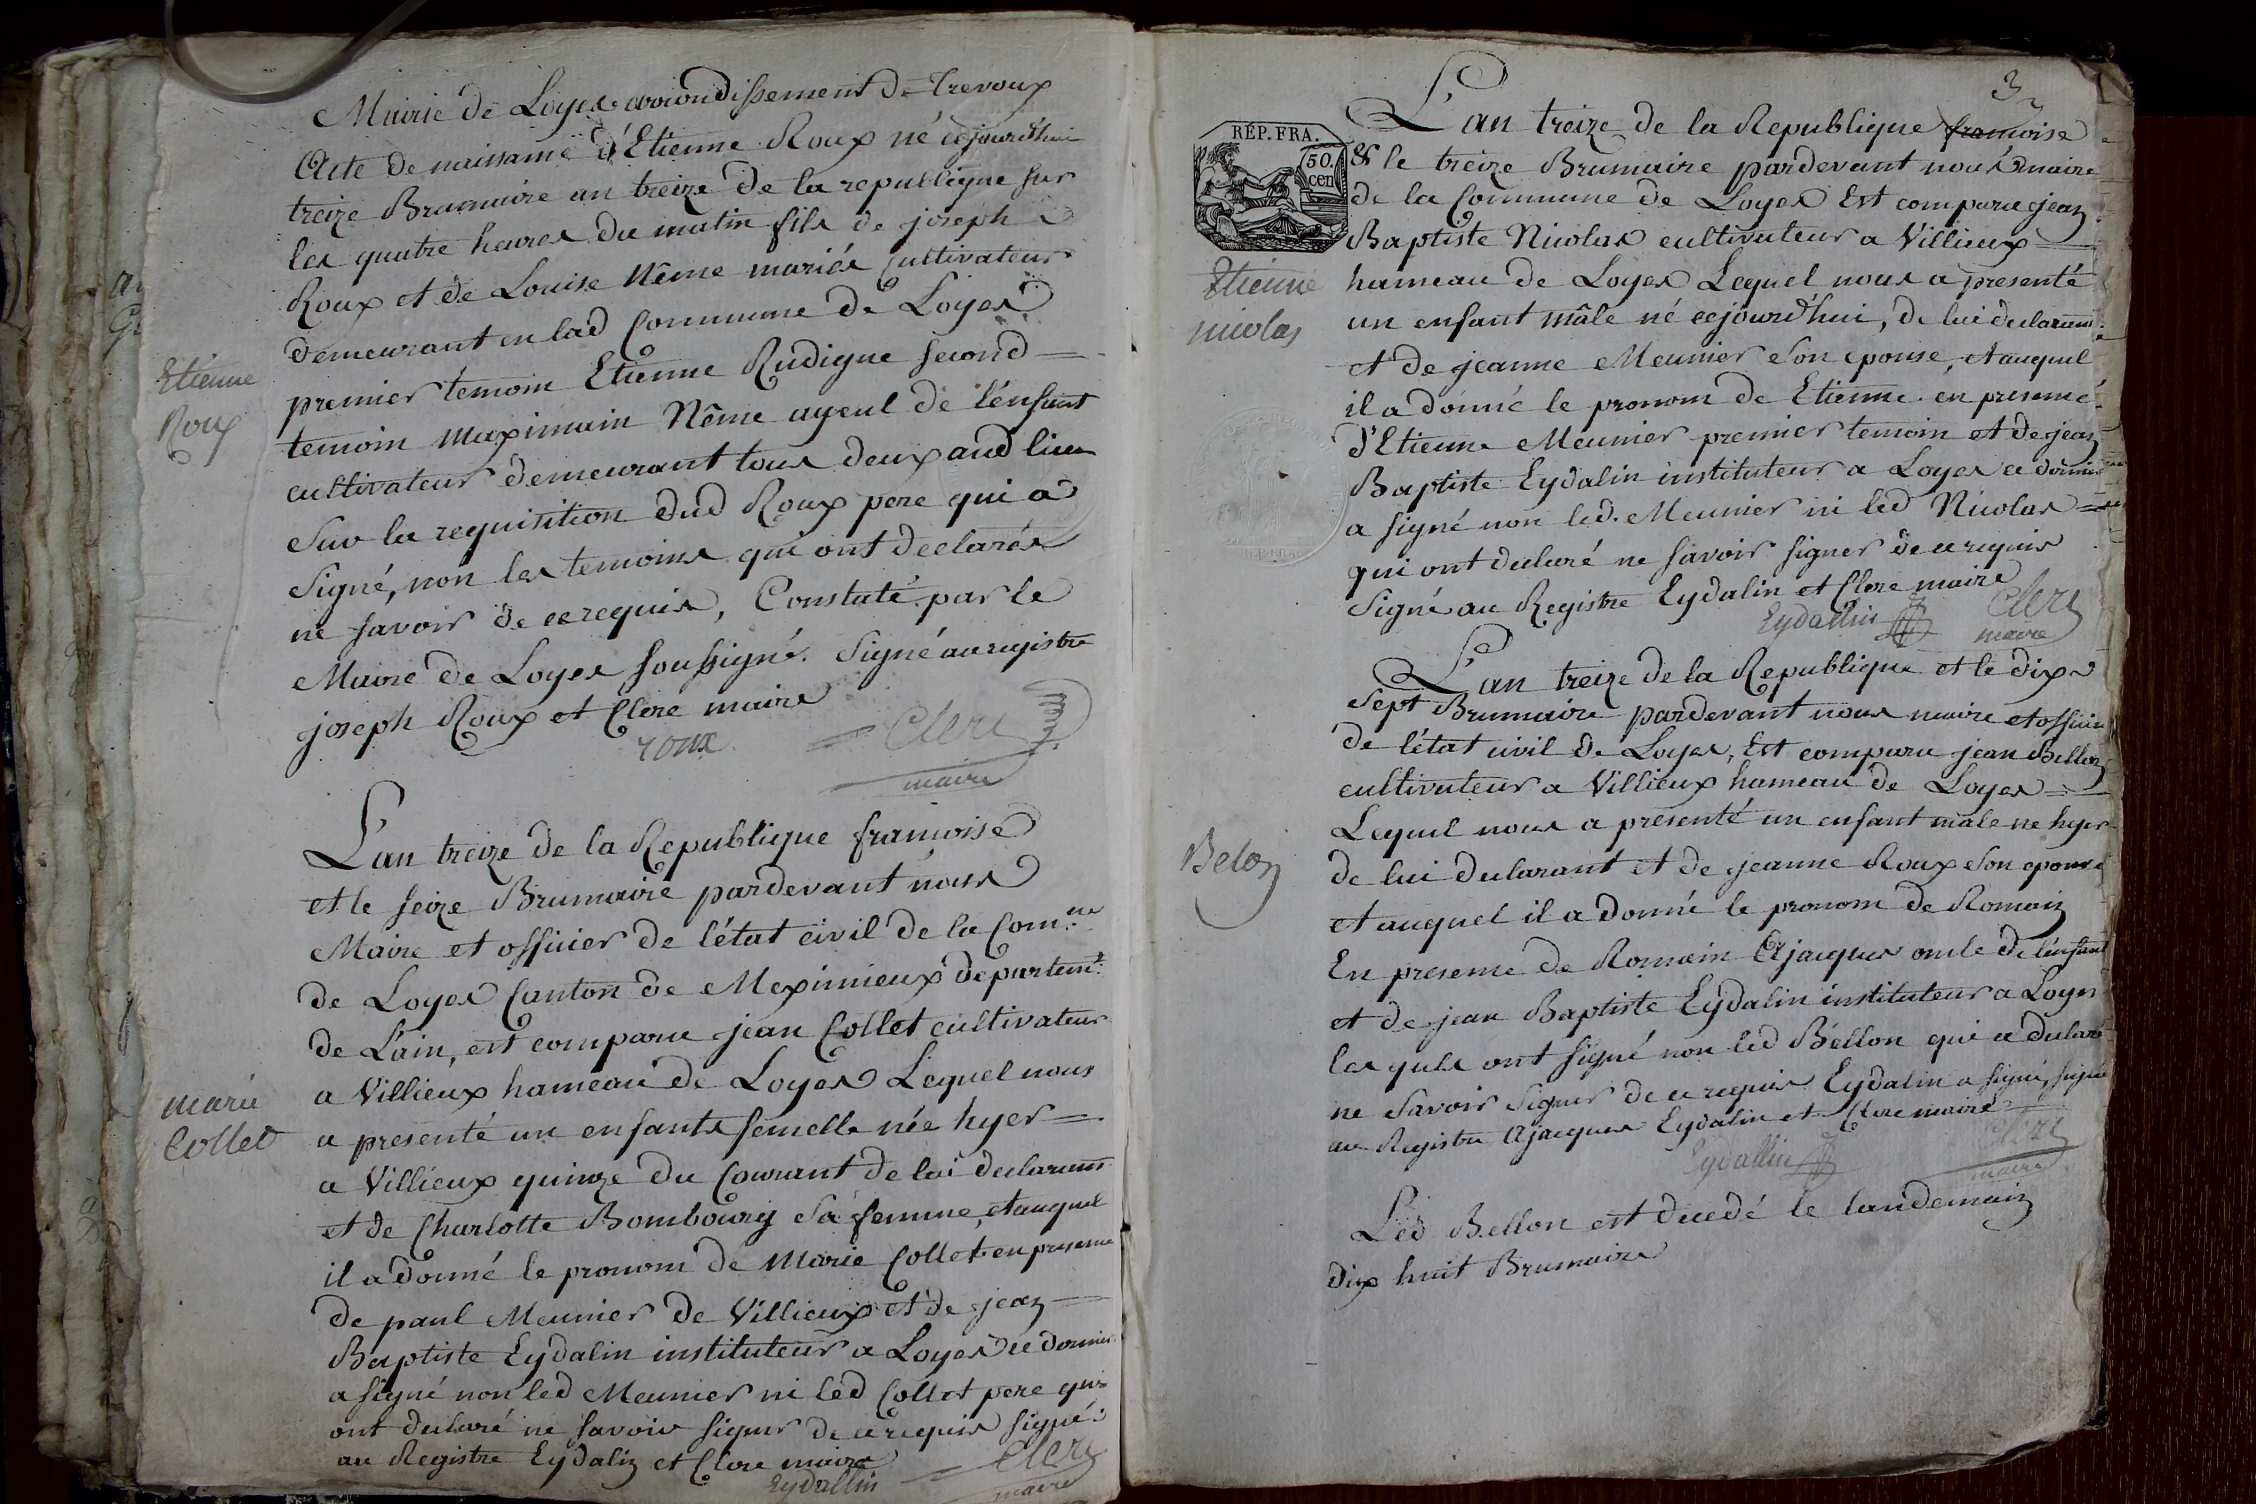 Mairie de Loyes arrondissement de Trevoux
Acte de naissance d'Etienne Roux né cejourd'hui
treize Brumaire an treize de la republique sur
les quatre heures du matin fils de joseph
Roux et de Louise Nême mariés Cultivateurs
demeurant en lad Commune de Loyes
premier temoin Etienne Rudigue second
Etienne
Roux
temoin Maximain Nême ayeul de l'enfant
cultivateurs demeurant tous deux aud lieu
Sur la requisition dud Roux pere qui a
Signé, non les temoins qui ont declarés
ne savoir de ce requis, Constaté par le
Maire de Loyes soussigné. Signé au registre
joseph Roux et Clerc maire
roux Clerc
maire
L'an treize de la Republique francoise
et le seize Brumaire pardevant nous
Maire et officier de l'état civil de la Com.ne
de Loyes Canton de Meximieux departemt.
de L'ain, est comparu jean Collet cultivateur
a Villieux hameau de Loyes Lequel nous
marie
Collet
a presenté un enfants femelle née hyer
a Villieux quinze du Courant de lui declarant
et de Charlotte Bombourg sa femme, et auquel
il a donné le pronom de Marie Collet en presence
de paul Meunier de Villieux et de jean
Baptiste Eydalin instituteur a Loyes ce dernier
a signé non led Meunier ni led Collet pere qui
ont declaré ne savoir signer de ce requis signé
au Registre Eydalin et Clerc maire
Eydallin Clerc
maire
3
REP. FRA.
50.
cen
L'an treize de la Republique francoise
& le treize Brumaire pardevant nous maire
de la Commune de Loyes Est comparu jean
Baptiste Nicolas cultivateur a Villieux
Etienne
nicolas
hameau de Loyes Lequel nous a presenté
un enfant mâle né cejourd'hui, de lui declarant
et de jeanne Meunier son epouse, et auquel
il a donné le pronom de Etienne en presence
d'Etienne Meunier premier temoin et de jean
Baptiste Eydalin instituteur a Loyes ce dernier
a signé non led. Meunier ni led Nicolas
qui ont declaré ne savoir signer de ce requis
Signé au Registre Eydalin et Clerc maire
Eydallin Clerc
maire
L'an treize de la Republique et le dix
sept Brumaire pardevant nous maire et officier
de l'état civil de Loyes, Est comparu jean Bellon
cultivateur a Villieux hameau de Loyes
Lequel nous a presenté un enfant male ne hyer
Belon
de lui declarant et de jeanne Roux son epouse
et auquel il a donné le pronom de Romain
En presence de Romain Ajacques oncle de l'enfant
et de jean Baptiste Eydalin instituteur a Loyes
les quels ont signé non led Bellon qui a declaré
ne savoir signer de ce requis Eydalin a signé, signé
au Registre Ajacques Eydalin et Clerc maire
Eydallin Clerc
maire
Led Bellon est decedé le landemain
dix huit Brumaire